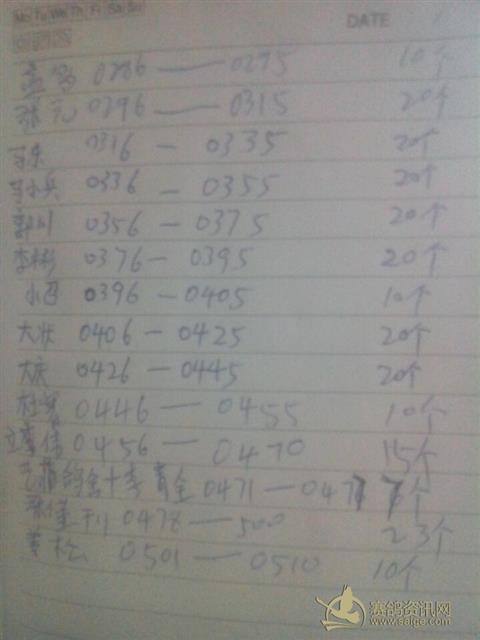 Mo Tu We Th Fr Sa Su
DATE
0286 — 0295 10个
张元 0296 — 0315 20个
0316 — 0335 20个
小兵 0336 — 0355 20个
0356 — 0375 20个
李彬 0376 — 0395 20个
小召 0396 — 0405 10个
大状 0406 — 0425 20个
大庆 0426 — 0445 20个
0446 — 0455 10个
0456 — 0470 15个
鸽舍+李黄金 0471 — 0477 7个
0478 — 500 23个
松 0501 — 0510 10个
赛鸽资讯网
www.saige.com